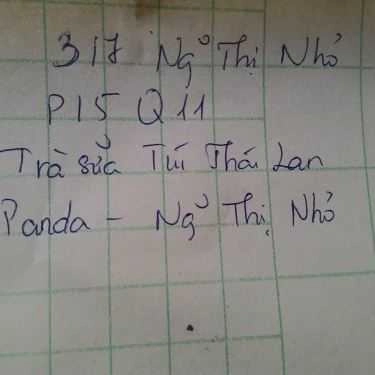 317 Ngỗ Thị Nhỏ
P15 Q11
Trà sữa Túi Thái Lan
Panda - Ngỗ Thị Nhỏ